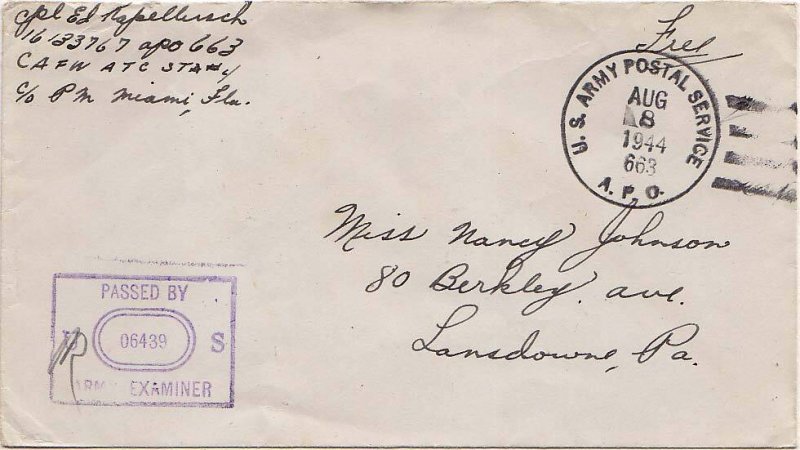 Cpl Ed Kapellusch
16133767 apo 663
CAFW ATC STA #4
c/o P M Miami, Fla.
Free
U. S. ARMY POSTAL SERVICE
AUG
8
1944
663
A. P. O.
Miss Nancy Johnson
80 Berkley. ave.
Lansdowne, Pa.
PASSED BY
U 06439 S
ARMY EXAMINER